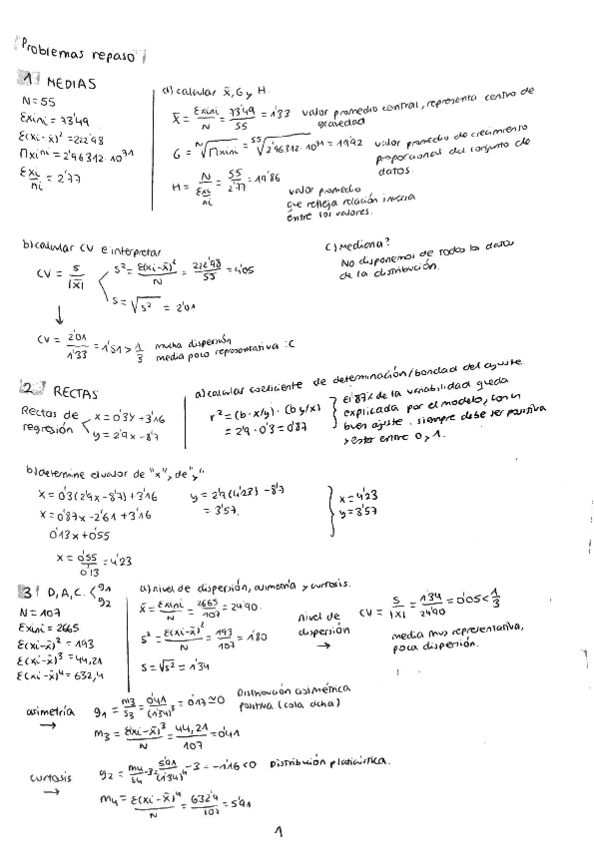 Problemas repaso
1 MEDIAS
N = 55
Σxini = 73'49
Σ(xi-x̄)² = 222'98
Πxini = 2'96312·10^71
Σxi/ni = 2'77
a) calcular x̄, G y H.
x̄ = Σxini/N = 73'49/55 = 1'33 valor promedio central, representa centro de
gravedad
G = ᴺ√Πxini = ⁵⁵√2'96312·10^71 = 19'92 valor promedio de crecimiento
proporcional del conjunto de
datos.
H = N/(Σxi/ni) = 55/2'77 = 19'86
valor promedio
que refleja relación inversa
entre los valores.
b) calcular CV e interpretar
CV = s/|x̄| s² = Σ(xi-x̄)²/N = 222'98/55 = 4'05
s = √s² = 2'01
↓
CV = 2'01/1'33 = 1'51 > 1/3 mucha dispersión
media poco representativa :C
c) Mediana?
No disponemos de todos los datos
de la distribución.
2 RECTAS
Rectas de regresión x = 0'3y + 3'16
y = 2'9x - 8'7
a) calcular coeficiente de determinación/bondad del ajuste
r² = (b·x/y)·(b y/x)
= 2'9·0'3 = 0'87
El 87% de la variabilidad queda
explicada por el modelo, con un
buen ajuste. siempre debe ser positiva
y estar entre 0 y 1.
b) determine el valor de "x", de "y"
x = 0'3(2'9x - 8'7) + 3'16
x = 0'87x - 2'61 + 3'16
0'13x + 0'55
x = 0'55/0'13 = 4'23
y = 2'9(4'23) - 8'7
= 3'57
x = 4'23
y = 3'57
3 D, A, C. < g1
g2
N = 107
Σxini = 2665
Σ(xi-x̄)² = 193
Σ(xi-x̄)³ = 44,21
Σ(xi-x̄)⁴ = 632,4
a) nivel de dispersión, asimetría y curtosis.
x̄ = Σxini/N = 2665/107 = 24'90
s² = Σ(xi-x̄)²/N = 193/107 = 1'80
s = √s² = 1'34
nivel de
dispersión
→
CV = s/|x̄| = 1'34/24'90 = 0'05 < 1/3
media muy representativa,
poca dispersión.
asimetría
→
g1 = m3/s3 = 0'41/(1'34)³ = 0'17 ≃ 0 Distribución asimétrica
positiva (cola dcha)
m3 = Σ(xi-x̄)³/N = 44,21/107 = 0'41
curtosis
→
g2 = m4/s4 - 3 = 5'91/(1'34)⁴ - 3 = -1'16 < 0 Distribución platicúrtica.
m4 = Σ(xi-x̄)⁴/N = 632'4/107 = 5'91
1